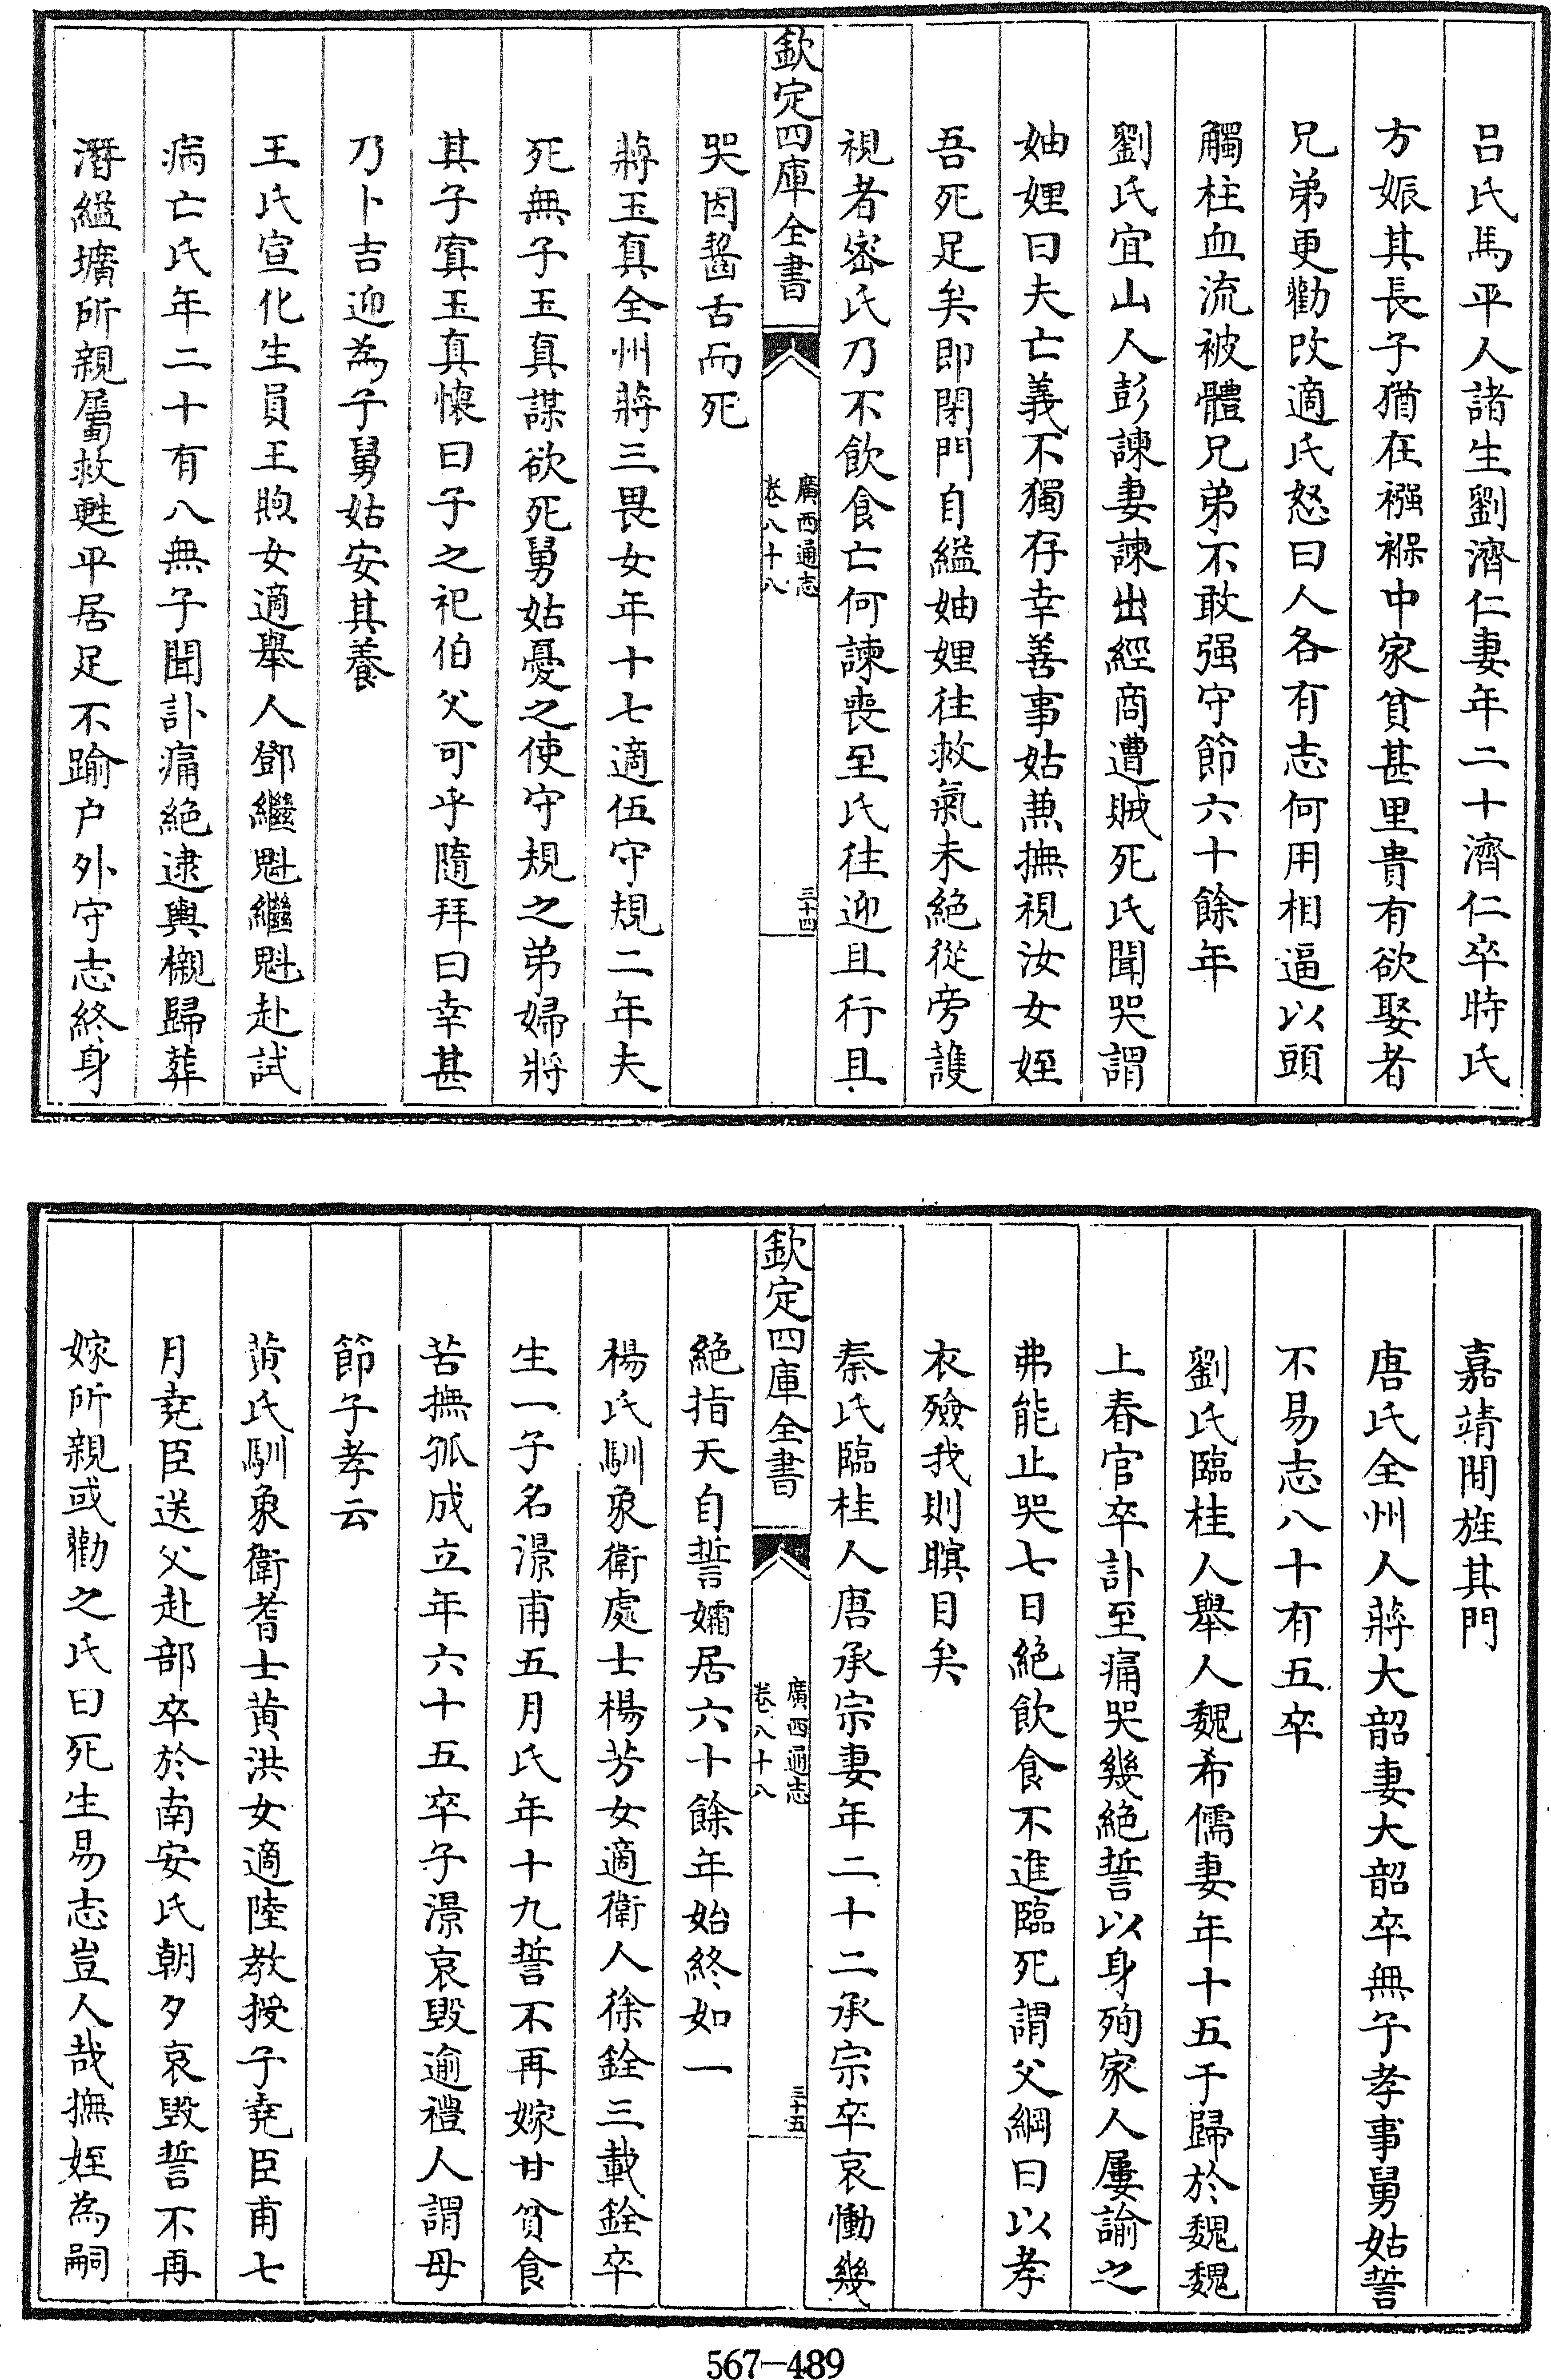 吕氏馬平人諸生劉濟仁妻年二十濟仁卒時氏
方娠其長子猶在襁褓中家貧甚里貴有欲娶者
兄弟更勸改適氏怒曰人各有志何用相逼以頭
觸柱血流被體兄弟不敢强守節六十餘年
劉氏宜山人彭諫妻諫出經商遭賊死氏聞哭謂
妯娌曰夫亡義不獨存幸善事姑兼撫視汝女姪
吾死足矣即閉門自縊妯娌往救氣未絶從旁護
視者密氏乃不飲食亡何諫喪至氏往迎且行且
欽定四庫全書
廣西通志
卷八十八
三十四
哭因齧舌而死
蔣玉真全州蔣三畏女年十七適伍守規二年夫
死無子玉真謀欲死舅姑憂之使守規之弟婦將
其子寘玉真懷曰子之祀伯父可乎隨拜曰幸甚
乃卜吉迎為子舅姑安其養
王氏宣化生員王煦女適舉人鄧繼魁繼魁赴試
病亡氏年二十有八無子聞訃痛絶逮輿櫬歸葬
潛縊壙所親屬救甦平居足不踰户外守志終身
嘉靖間旌其門
唐氏全州人蔣大韶妻大韶卒無子孝事舅姑誓
不易志八十有五卒
劉氏臨桂人舉人魏希儒妻年十五于歸於魏魏
上春官卒訃至痛哭幾絶誓以身殉家人屢諭之
弗能止哭七日絶飲食不進臨死謂父綱曰以孝
衣殮我則瞑目矣
秦氏臨桂人唐承宗妻年二十二承宗卒哀慟幾
欽定四庫全書
廣西通志
卷八十八
三十五
絶指天自誓孀居六十餘年始終如一
楊氏馴象衛處士楊芳女適衛人徐銓三載銓卒
生一子名澋甫五月氏年十九誓不再嫁甘貧食
苦撫孤成立年六十五卒子澋哀毁逾禮人謂母
節子孝云
黄氏馴象衛耆士黄洪女適陸教授子堯臣甫七
月堯臣送父赴部卒於南安氏朝夕哀毁誓不再
嫁所親或勸之氏曰死生易志豈人哉撫姪為嗣
567-489